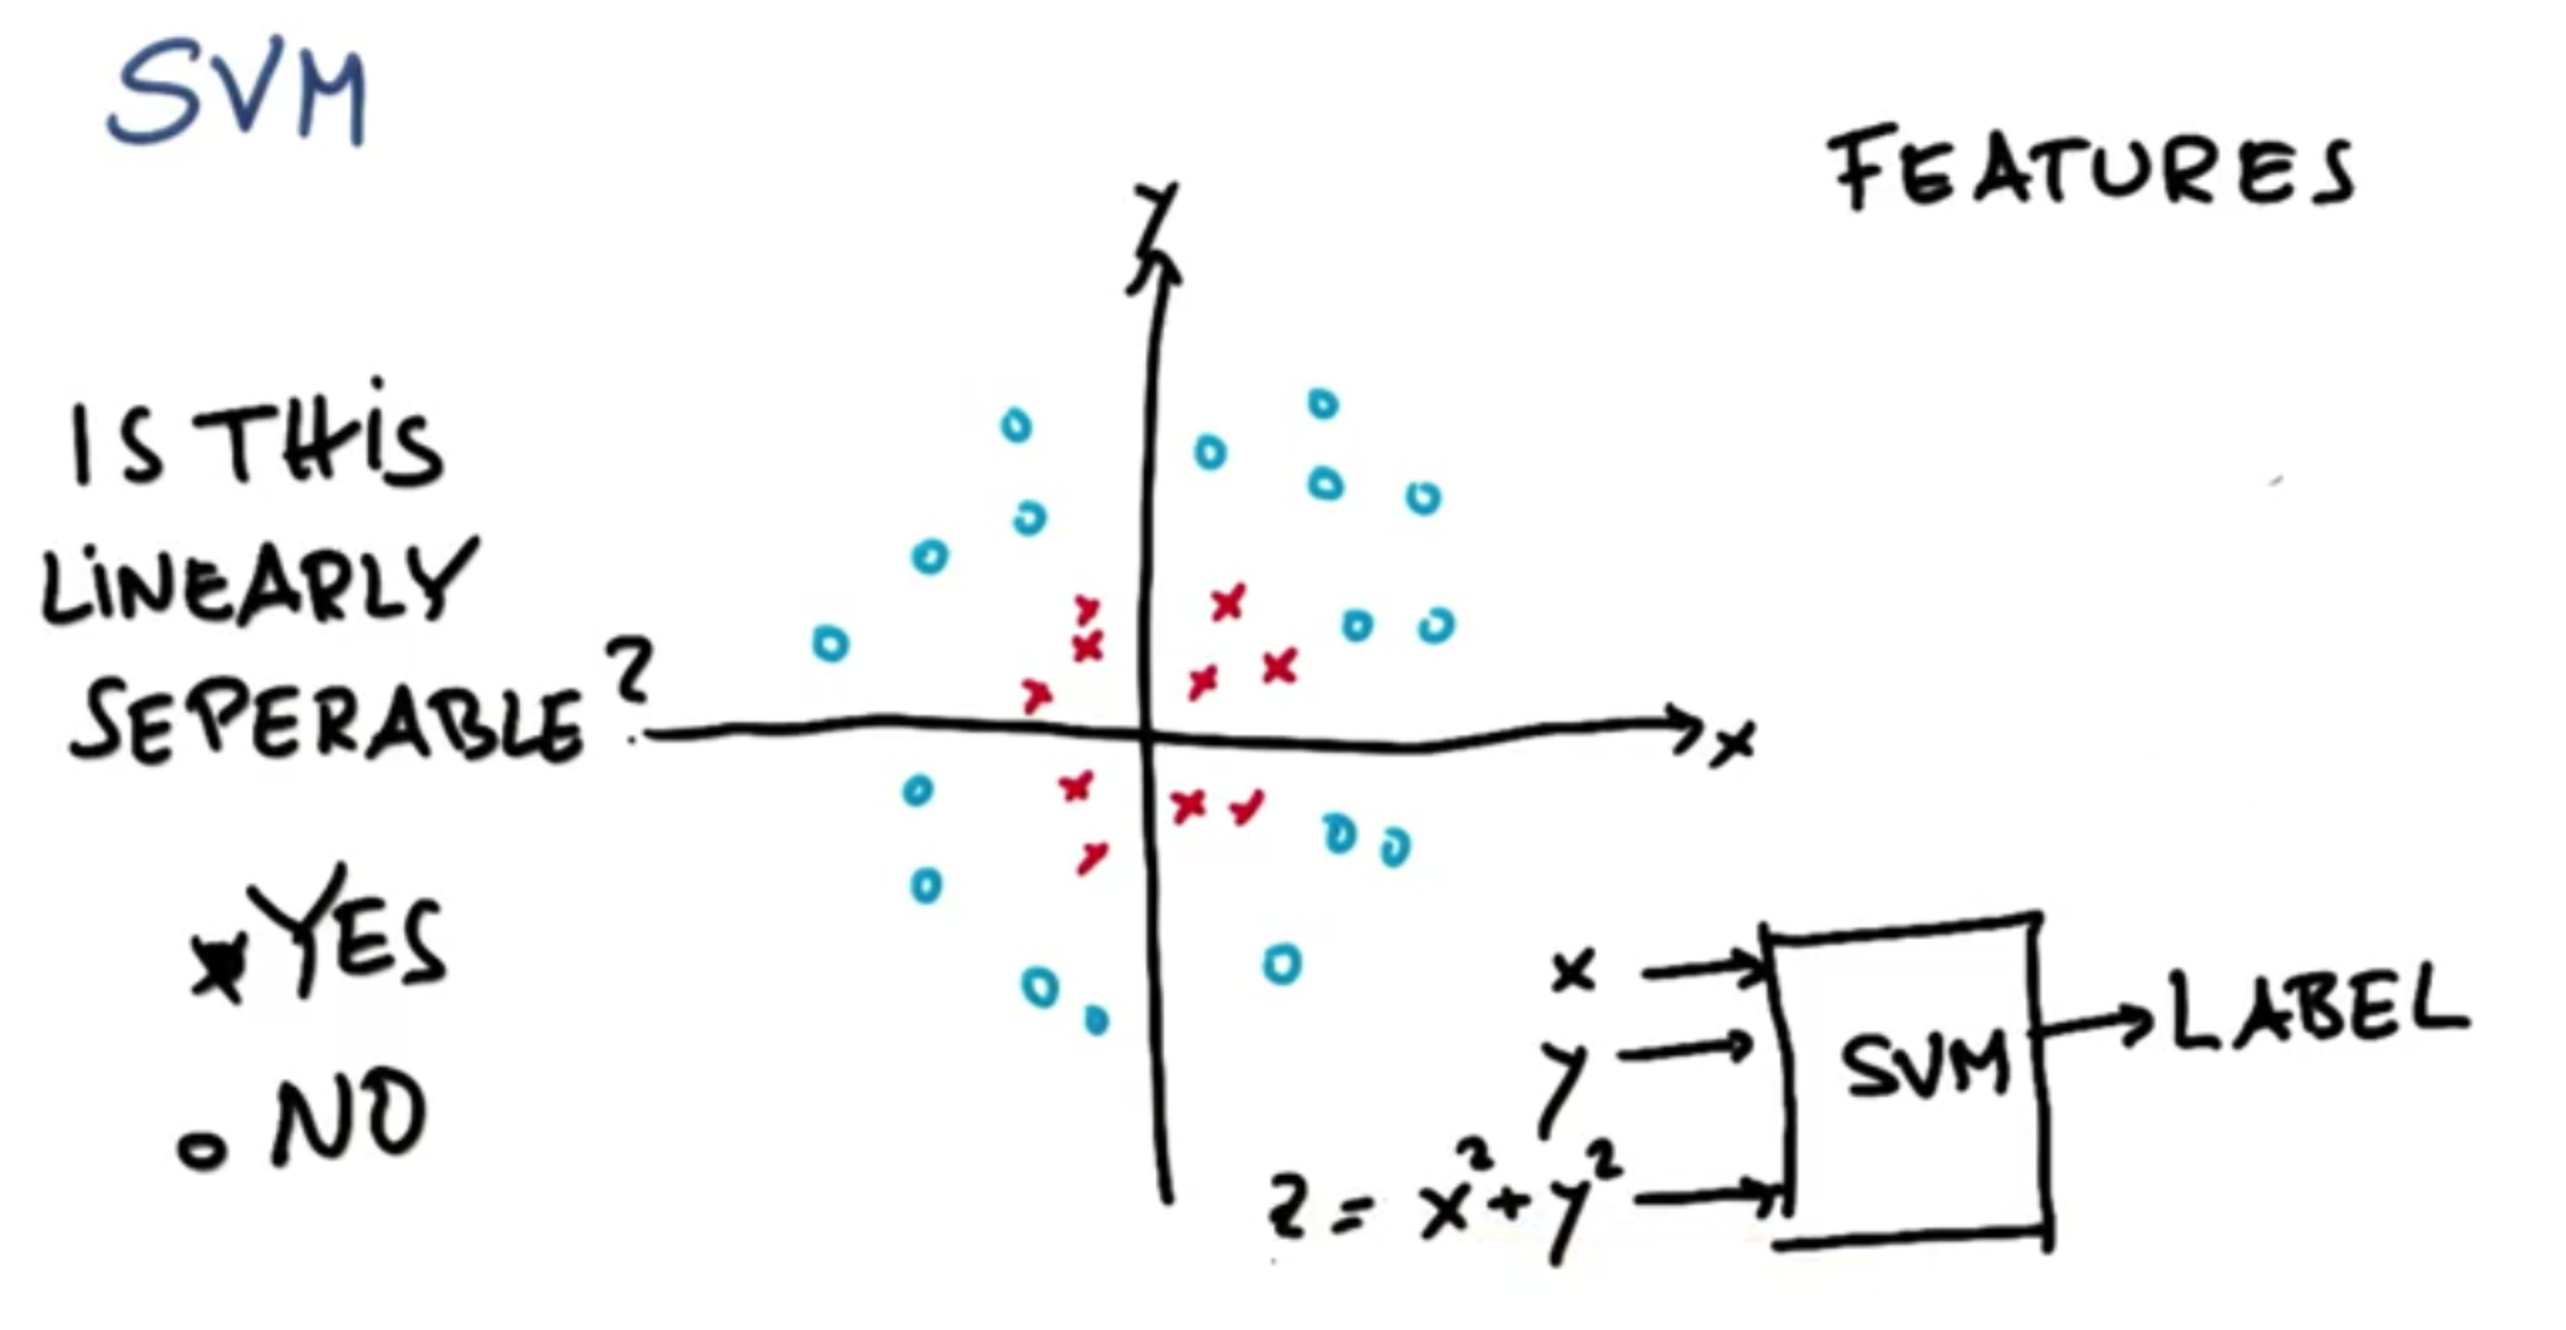 SVM
FEATURES
y
IS THIS
LINEARLY
SEPERABLE?
x
YES
NO
x
y
z = x²+y²
SVM
LABEL